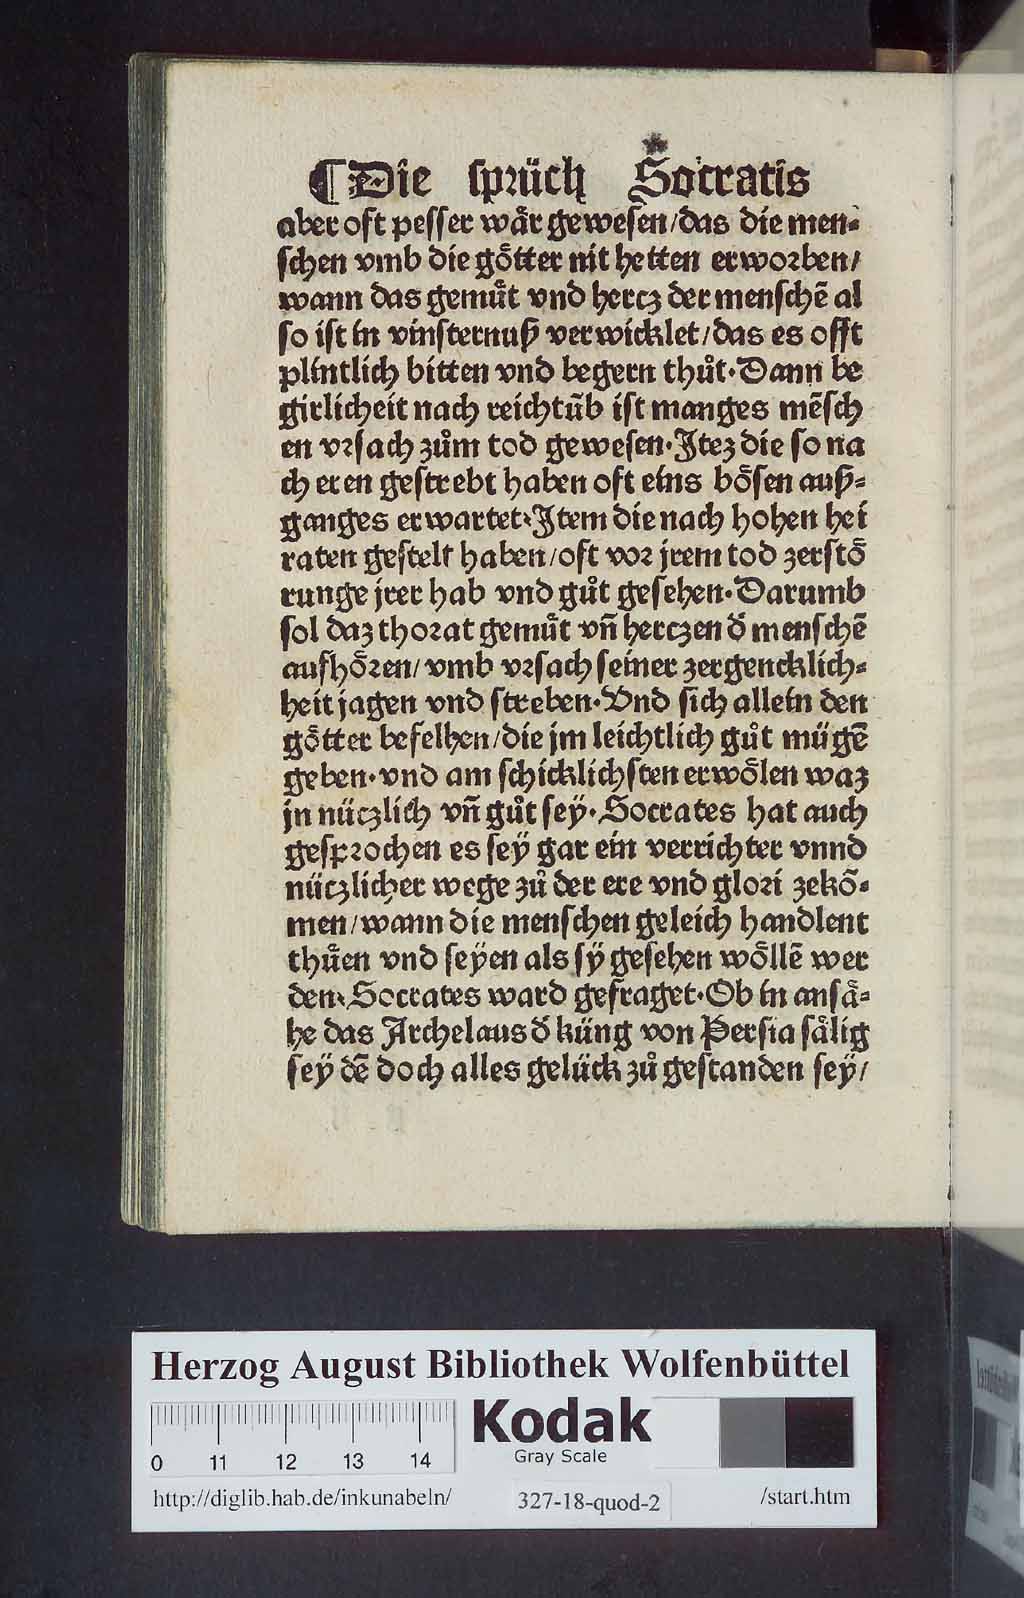 ¶Die sprüch Socratis
aber oft pesser wa᷏r gewesen/das die men⸗
schen vmb die goͤtter nit hetten erworben/
wann das gemuͤt vnd hercz der menschē al
so ist in vinsternuß verwicklet/das es offt
plintlich bitten vnd begern thůt·Dann be
girlicheit nach reichtūb ist manges mēsch
en vrsach zům tod gewesen·Jtez die so na
ch eren gestrebt haben oft eins boͤsen auß⸗
ganges erwartet·Jtem die nach hohen hei
raten gestelt haben/oft vor jrem tod zerstoͤ
runge jrer hab vnd gůt gesehen·Darumb
sol daz thorat gemuͤt vn̄ herczen d̕ menschē
aufhoͤren/vmb vrsach seiner zergencklich⸗
heit jagen vnd streben·Vnd sich allein den
goͤtter befelhen/die jm leichtlich gůt mügē
geben·vnd am schicklichsten erwoͤlen waz
jn nüczlich vn̄ gůt seÿ·Socrates hat auch
gesprochen es seÿ gar ein verrichter vnnd
nüczlicher wege zů der ere vnd glori zekō⸗
men/wann die menschen geleich handlent
thuͤen vnd seÿen als sÿ gesehen woͤllē wer
den·Socrates ward gefraget·Ob in ansaͤ⸗
he das Archelaus d̕ küng von Persia saͤlig
seÿ dē doch alles gelück zů gestanden seÿ/
Herzog August Bibliothek Wolfenbüttel
Kodak
Gray Scale
0 11 12 13 14
http://diglib.hab.de/inkunabeln/ 327-18-quod-2 /start.htm